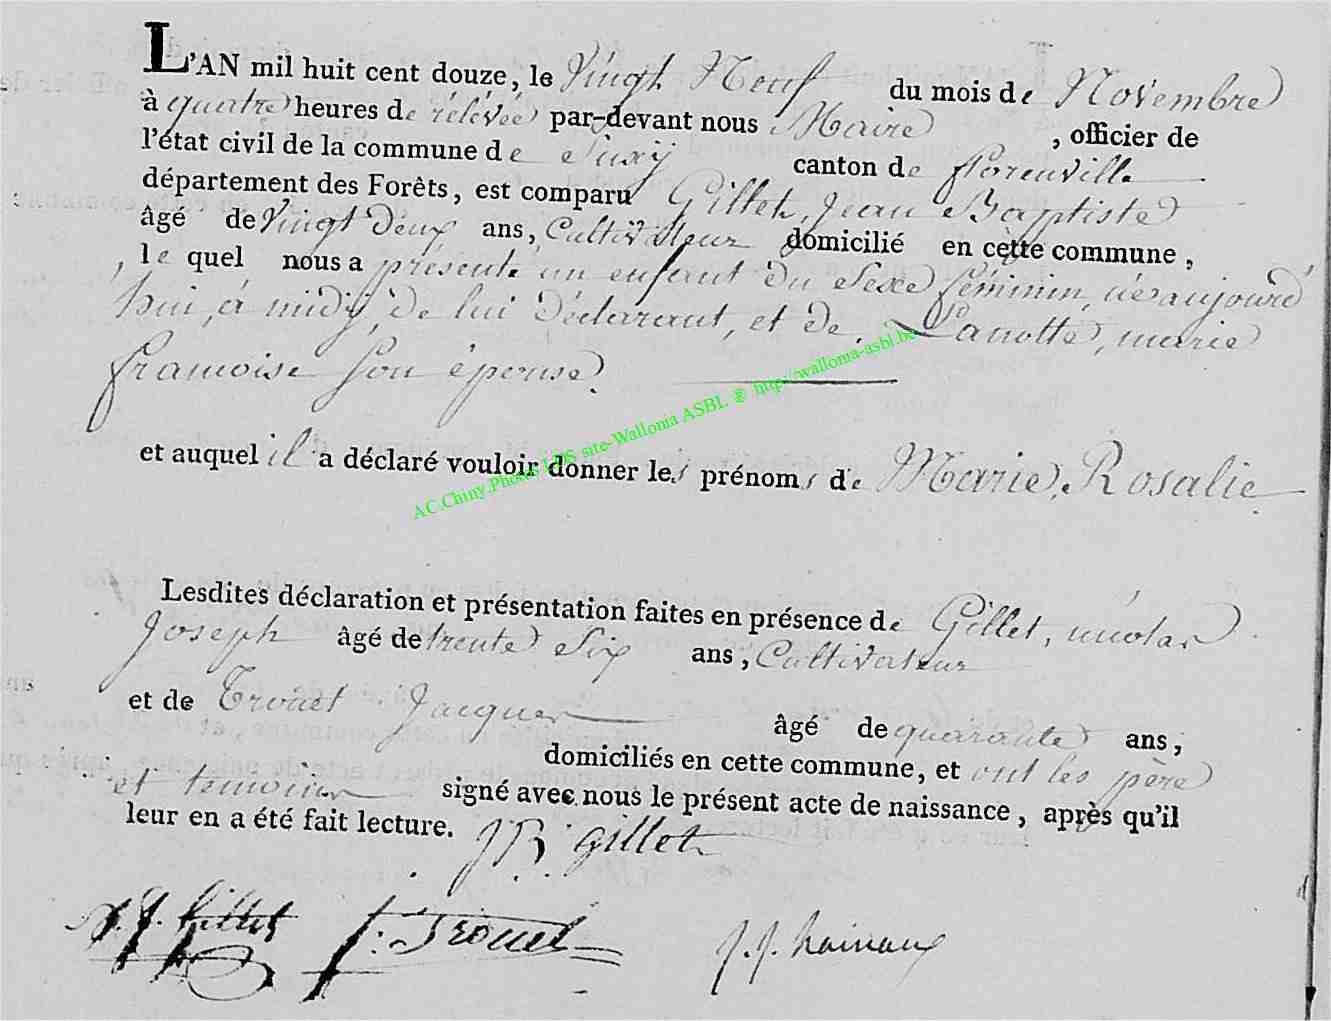 L'AN mil huit cent douze, le Vingt Neuf du mois de Novembre
à quatre heures de rélévée par-devant nous Maire, officier de
l'état civil de la commune de Suxÿ canton de florenville
département des Forêts, est comparu Gillet, Jean Baptiste
âgé de Vingt Deux ans, Cultivateur domicilié en cette commune,
le quel nous a présenté un enfant du Sexe féminin, née aujourd'
hui, à midy, de lui Déclarant, et de Lanotte, marie
francoise son épouse.
et auquel il a déclaré vouloir donner les prénoms de Marie, Rosalie
Lesdites déclaration et présentation faites en présence de Gillet, nicolas
Joseph âgé de trente Six ans, Cultivateur
et de Trouet Jacques âgé de quarante ans,
domiciliés en cette commune, et ont les père
et temoins signé avec nous le présent acte de naissance, après qu'il
leur en a été fait lecture. J B Gillet
N. J. Gillet J. Trouet J. J. hainaux
AC.Chiny.Photos LDS site-Wallonia ASBL @ http://wallonia-asbl.be